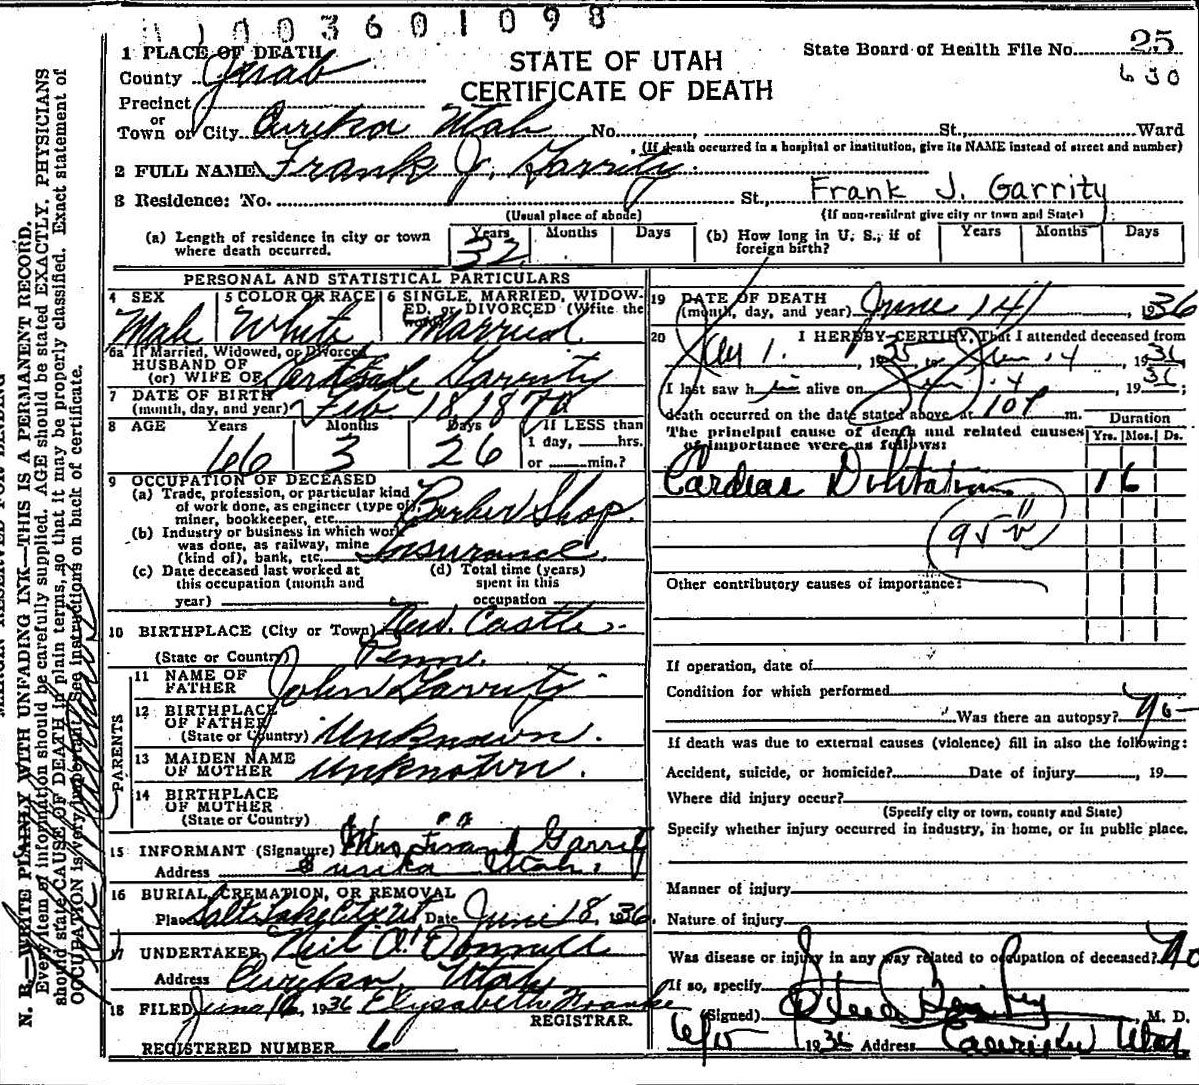 1003601098
1 PLACE OF DEATH
STATE OF UTAH
CERTIFICATE OF DEATH
State Board of Health File No. 25
630
County Juab
Precinct
or
Town or City Eureka Utah No. , St., Ward
(If death occurred in a hospital or institution, give its NAME instead of street and number)
2 FULL NAME Frank J. Garrity
3 Residence: No. St., Frank J. Garrity
(Usual place of abode) (If non-resident give city or town and State)
(a) Length of residence in city or town where death occurred. Years 32 Months Days
(b) How long in U. S., if of foreign birth? Years Months Days
PERSONAL AND STATISTICAL PARTICULARS
4 SEX Male
5 COLOR OR RACE White
6 SINGLE, MARRIED, WIDOWED, or DIVORCED (Write the word) Married
6a If Married, Widowed, or Divorced
HUSBAND OF
(or) WIFE OF Garrity
7 DATE OF BIRTH
(month, day, and year) Feb 18, 1870
8 AGE Years 66 Months 3 Days 26 If LESS than
1 day, hrs.
or min.?
9 OCCUPATION OF DECEASED
(a) Trade, profession, or particular kind
of work done, as engineer (type of)
miner, bookkeeper, etc. Barber Shop
(b) Industry or business in which work
was done, as railway, mine
(kind of), bank, etc. Insurance
(c) Date deceased last worked at
this occupation (month and
year)
(d) Total time (years)
spent in this
occupation
10 BIRTHPLACE (City or Town) New Castle
(State or Country) Penn.
PARENTS
11 NAME OF
FATHER John Garrity
12 BIRTHPLACE
OF FATHER
(State or Country) Unknown.
13 MAIDEN NAME
OF MOTHER Unknown.
14 BIRTHPLACE
OF MOTHER
(State or Country) " "
15 INFORMANT (Signature) Mrs Frank Garrity
Address Eureka Utah.
16 BURIAL, CREMATION, OR REMOVAL
Place Salt Lake City Ut Date June 18, 1936.
17 UNDERTAKER Neil O'Donnell
Address Eureka, Utah
18 FILED June 16, 1936 Elysabeth
REGISTRAR.
REGISTERED NUMBER 6
19 DATE OF DEATH
(month, day, and year) June 14, 1936
20 I HEREBY CERTIFY, That I attended deceased from
1, 1935 to June 14, 1936
I last saw him alive on June 14, 1936;
death occurred on the date stated above at 10 P m.
The principal cause of death and related causes
of importance were as follows:
Duration
Yrs. Mos. Ds.
Cardiac Dilitation 1 6
Other contributory causes of importance:
If operation, date of
Condition for which performed
Was there an autopsy? No
If death was due to external causes (violence) fill in also the following:
Accident, suicide, or homicide? Date of injury , 19
Where did injury occur?
(Specify city or town, county and State)
Specify whether injury occurred in industry, in home, or in public place.
Manner of injury
Nature of injury
Was disease or injury in any way related to occupation of deceased? No
If so, specify
(Signed) M. D.
6/15 1936 Address Eureka Utah
N. B.—WRITE PLAINLY WITH UNFADING INK—THIS IS A PERMANENT RECORD.
Every item of information should be carefully supplied. AGE should be stated EXACTLY. PHYSICIANS
should state CAUSE OF DEATH in plain terms, so that it may be properly classified. Exact statement of
OCCUPATION is very important. See instructions on back of certificate.